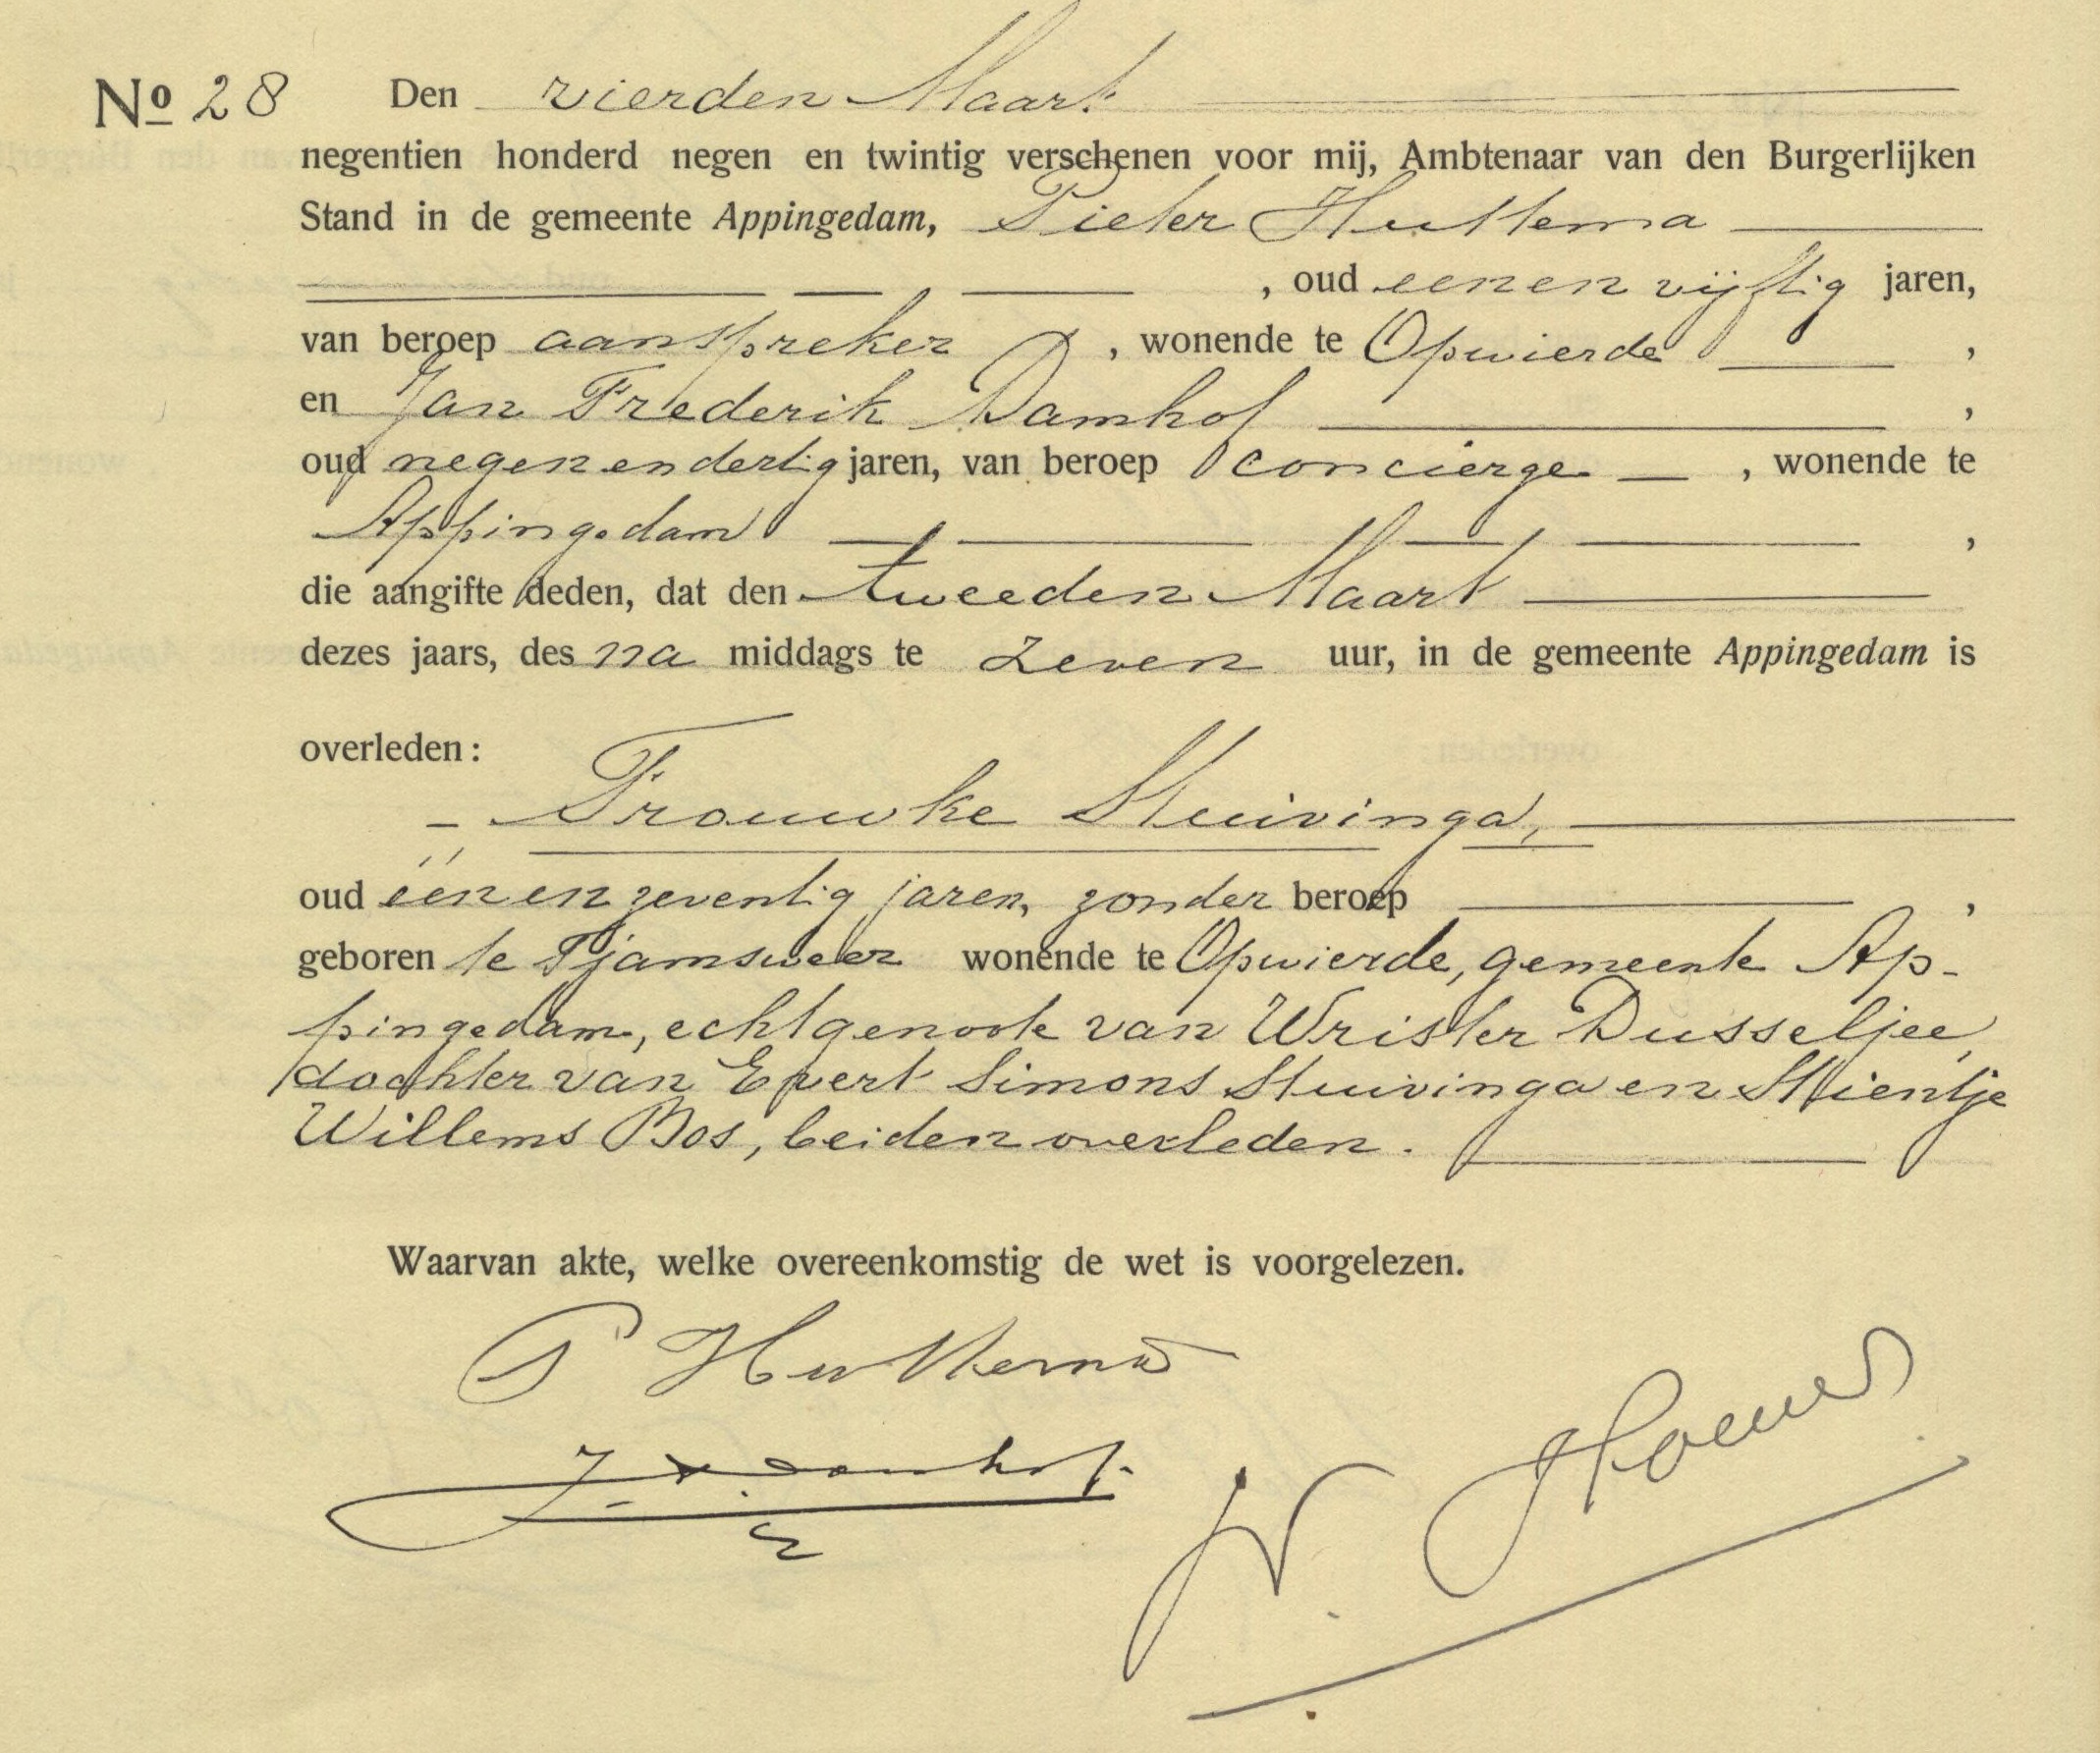 No 28 Den vierden Maart
negentien honderd negen en twintig verschenen voor mij, Ambtenaar van den Burgerlijken
Stand in de gemeente Appingedam, Pieter Huttema
, oud eenen vijftig jaren,
van beroep aanspreker , wonende te Opwierde ,
en Jan Frederik Damhof ,
oud negen en dertig jaren, van beroep concierge , wonende te
Appingedam ,
die aangifte deden, dat den tweeden Maart
dezes jaars, des na middags te zeven uur, in de gemeente Appingedam is
overleden:
Frouwke Stuivinga,
oud één en zeventig jaren, zonder beroep ,
geboren te Tjamsweer wonende te Opwierde, gemeente Ap-
pingedam, echtgenoote van Wrister Dusseljee,
dochter van Evert Simons Stuivinga en Stientje
Willems Bos, beiden overleden.
Waarvan akte, welke overeenkomstig de wet is voorgelezen.
P Huttema
J F Damhof